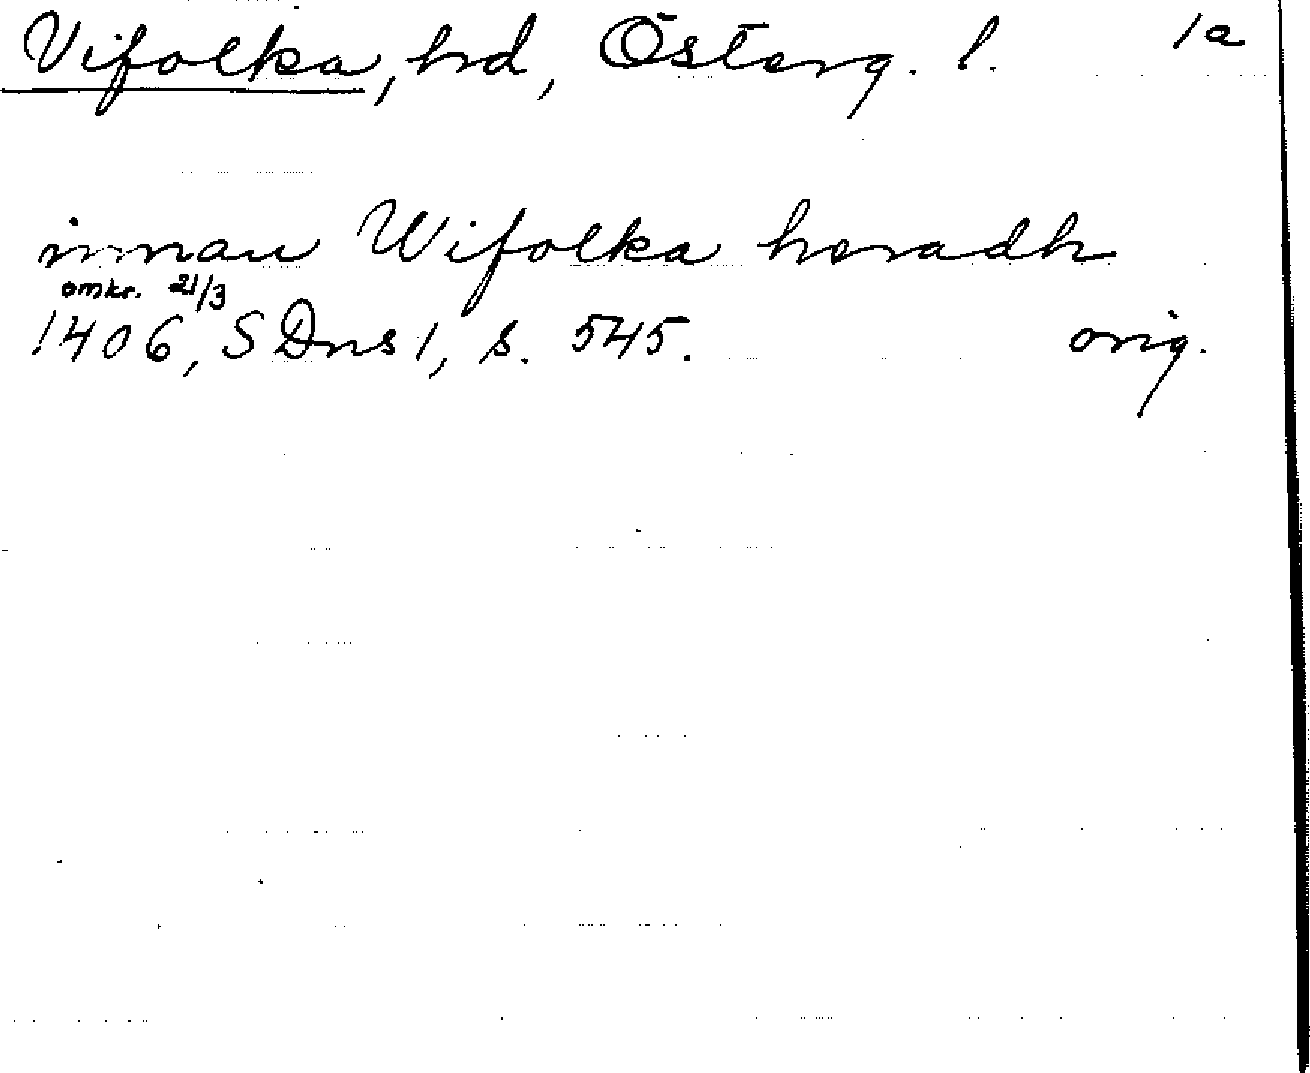 Vifolka, hd, Österg. l. 1a
innan Wifolka heradh
omkr. 21/3
1406, SDns 1, s. 545. orig.